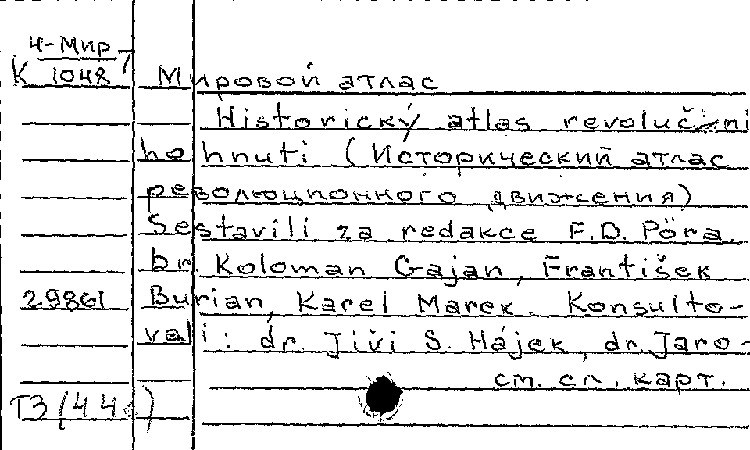 Ч-Мир
К 1048
Мировой атлас
Historický atlas revolučni
ho hnuti (Исторический атлас
революционного движения)
Sestavili za redakce F.D. Pöra
br Koloman Gajan, František
29861 Burian, Karel Marek. Konsulto-
vali: dr. Jiři S. Hájek, dr. Jaro-
см. сл. карт.